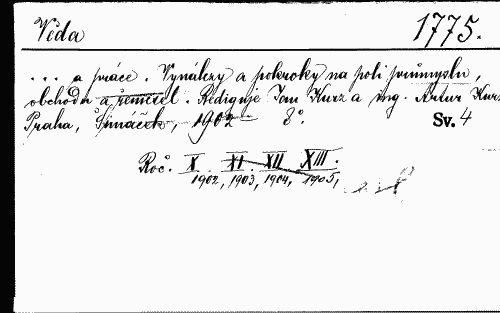 Věda 1775.
... a práce. Vynálezy a pokroky na poli průmyslu,
obchodu a řemesel. Rediguje Jan Kurz a ing. Artur Kurz
Praha, Šimáček, 1902 – 8°. Sv. 4
Roč. X. XI. XII. XIII.
1902, 1903, 1904, 1905,